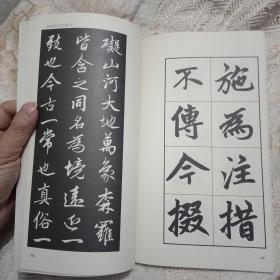 施為注措
不傳今掇
礙山河大地萬象森羅
皆含之同名為境遠近一
致也今古一常也真俗一